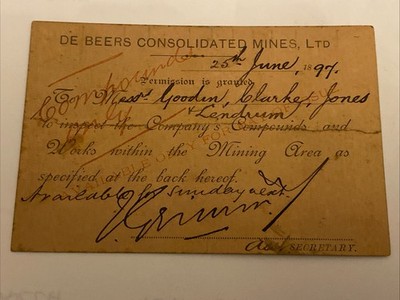 DE BEERS CONSOLIDATED MINES, LTD
25th June, 1897.
Permission is granted
To Messrs Goodin, Clarke & Jones
& Lendrum
to inspect the Company's Compounds and
Works within the Mining Area as
specified at the back hereof.
Available for Sunday next.
SECRETARY.
Compounds
Only